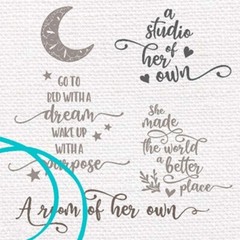 GO TO
BED WITH A
dream
WAKE UP
WITH A
purpose
a
studio
of
her
own
She
made
the world
a
better
place
A room of her own